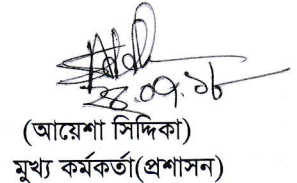 ২৪.০৭.১৮
(আয়েশা সিদ্দিকা)
মুখ্য কর্মকর্তা(প্রশাসন)